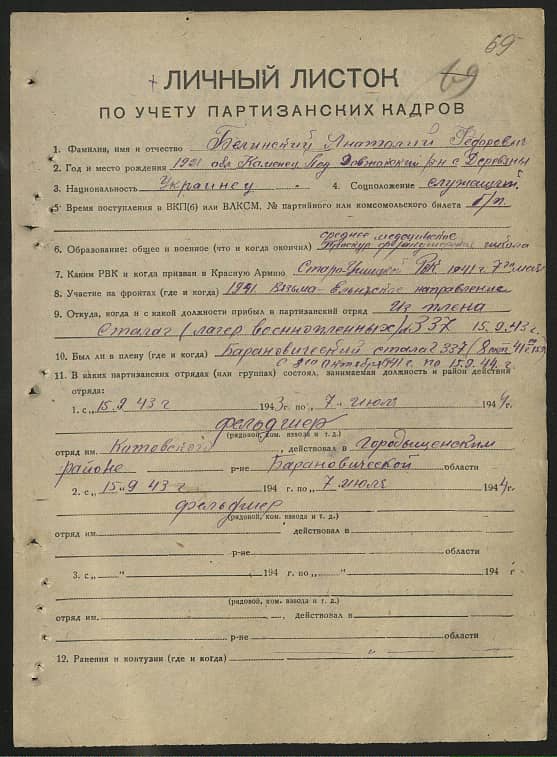 69
69
+ ЛИЧНЫЙ ЛИСТОК
ПО УЧЕТУ ПАРТИЗАНСКИХ КАДРОВ
1. Фамилия, имя и отчество Белинский Анатолий Фёдорович
2. Год и место рождения 1921 обл Каменец Под р-н с Деревяны
3. Национальность Украинец 4. Соцположение служащий
5. Время поступления в ВКП(б) или ВЛКСМ, № партийного или комсомольского билета б/п
среднее медицинское
6. Образование: общее и военное (что и когда окончил) фельдшерская школа
7. Каким РВК и когда призван в Красную Армию Старо-Ушицкий РВК 1941 г. 7го мая
8. Участие на фронтах (где и когда) 1941. Вязьма- направление
9. Откуда, когда и с какой должности прибыл в партизанский отряд Из плена
Сталаг (лагер военнопленных) № 337 15.9.43 г.
10. Был ли в плену (где и когда) Барановический сталаг 337
с октября 41 г. по 15.9.44 г.
11. В каких партизанских отрядах (или группах) состоял, занимаемая должность и район действий
отряда:
1. с „ 15.9 43 г 1943 г. по „ 7 " июля 1944 г.
фельдшер
(рядовой, ком. взвода и т. д.)
отряд им. Катовского , действовал в Городыщенским
районе р-не Барановической области
2. с „ 15 " 9 43 г 194 г. по „ 7 " июля 1944 г.
фельдшер
(рядовой, ком. взвода и т. д.)
отряд им. действовал в
р-не области
3. с „ " 194 г. по „ " 194 г
(рядовой, ком. взвода и т. д.)
отряд им. , действовал в
р-не области
12. Ранения и контузии (где и когда) — " —